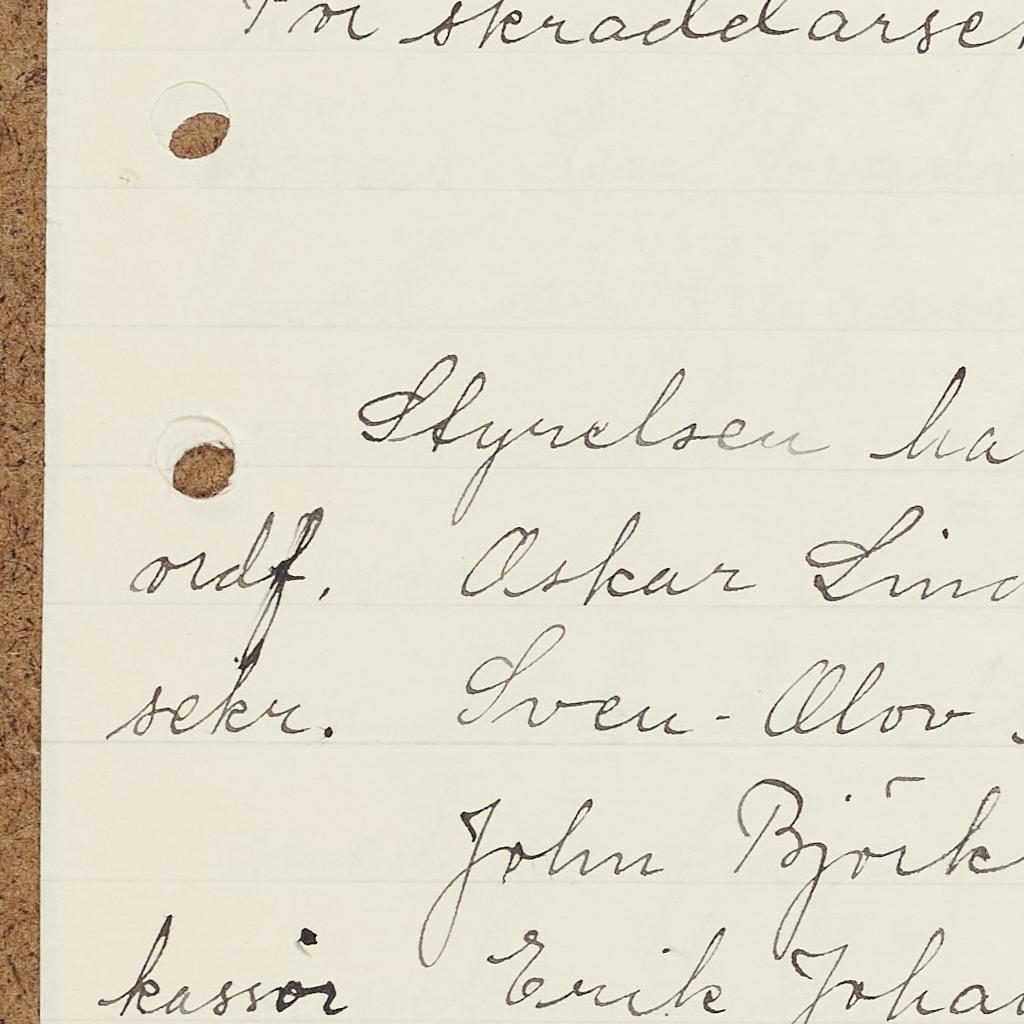 För skräddarsek
Styrelsen ha
ordf. Oskar Lind
sekr. Sven-Olov
John Björk
kassör Erik Johan